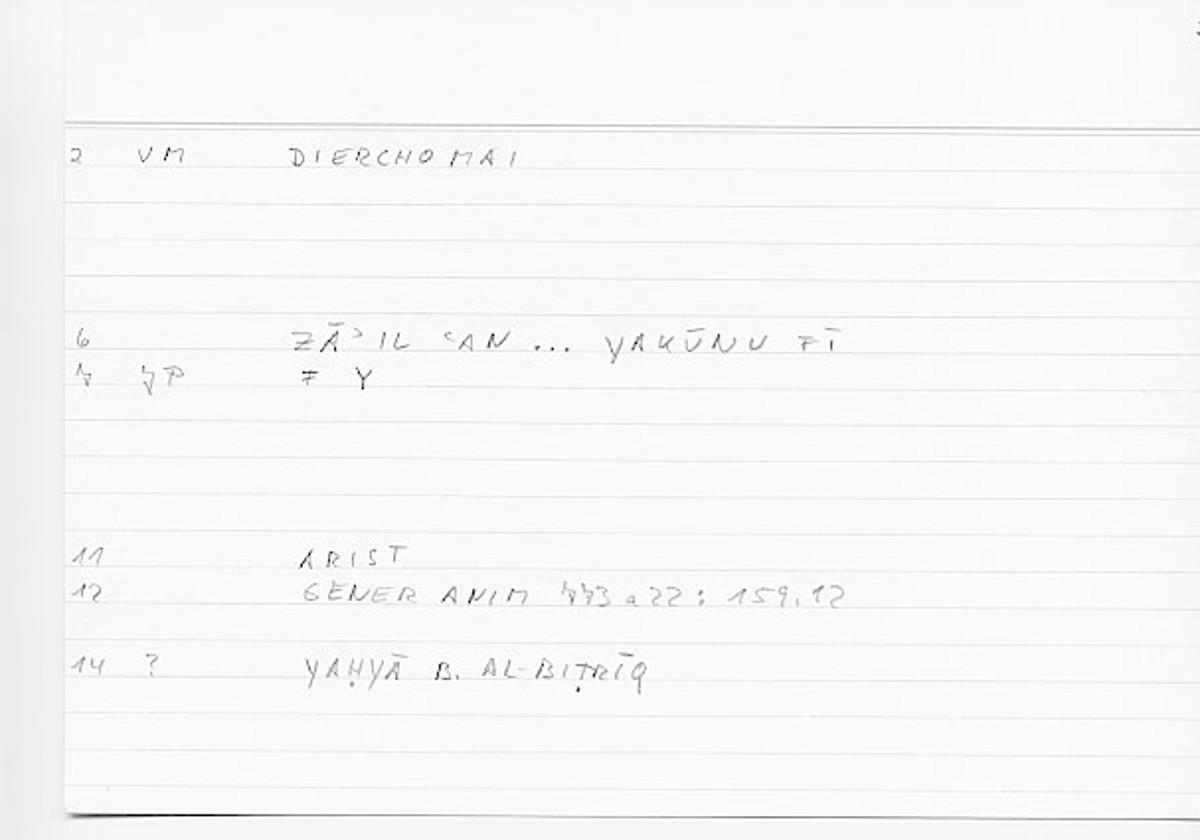 2 VM DIERCHOMAI
6 ZĀʾIL ʿAN ... YAKŪNU FĪ
7 7P F Y
11 ARIST
12 GENER ANIM 773 a 22 : 159.12
14 ? YAḤYĀ B. AL-BIṬRĪQ